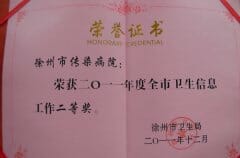 荣誉证书
HONORARY CREDENTIAL
徐州市传染病院：
荣获二〇一一年度全市卫生信息
工作二等奖。
徐州市卫生局
二〇一一年十二月